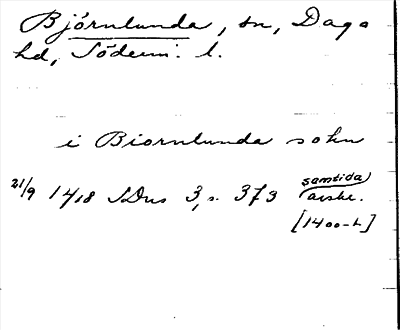 Björnlunda, sn, Daga
hd, Söderm. l.
i Biornlunda sokn
21/9 1418 SDns 3, s. 373 samtida avskr.
[1400-t]